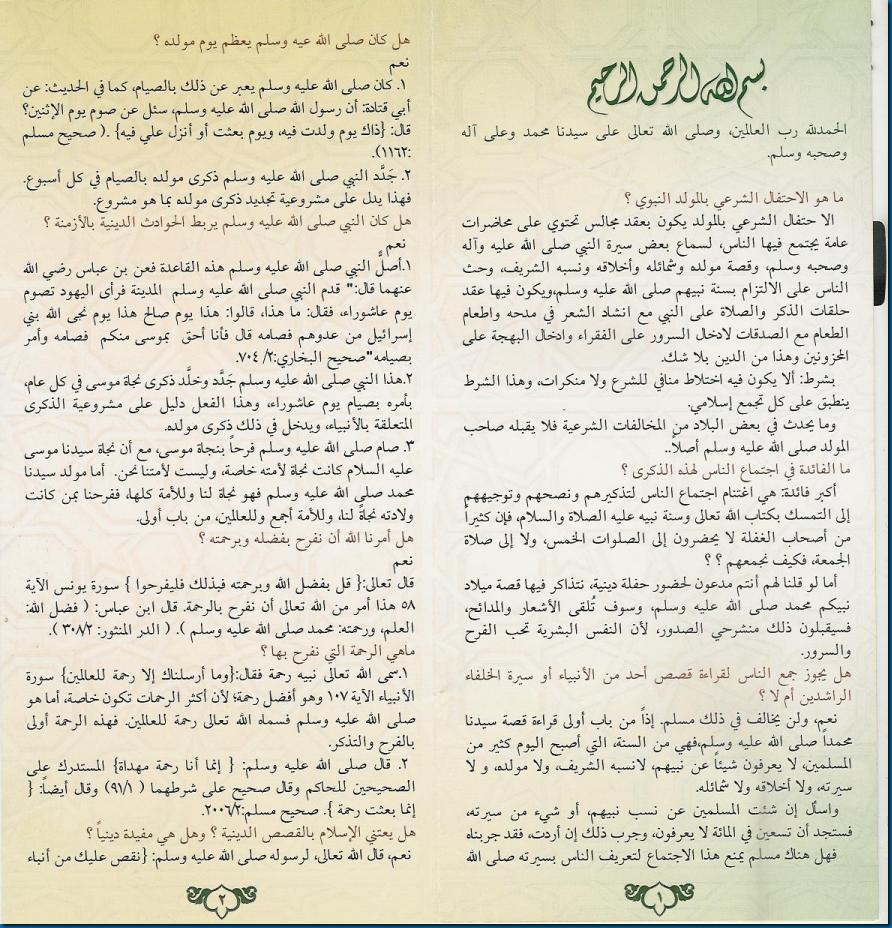 بسم الله الرحمن الرحيم
الحمدلله رب العالمين، وصلى الله تعالى على سيدنا محمد وعلى آله
وصحبه وسلم.
ما هو الاحتفال الشرعي بالمولد النبوي ؟
الا حتفال الشرعي بالمولد يكون بعقد مجالس تحتوي على محاضرات
عامة يجتمع فيها الناس، لسماع بعض سيرة النبي صلى الله عليه وآله
وصحبه وسلم، وقصة مولده وشمائله وأخلاقه ونسبه الشريف، وحث
الناس على الالتزام بسنة نبيهم صلى الله عليه وسلم،ويكون فيها عقد
حلقات الذكر والصلاة على النبي مع انشاد الشعر في مدحه واطعام
الطعام مع الصدقات لادخال السرور على الفقراء وادخال البهجة على
المحزونين وهذا من الدين بلا شك.
بشرط: ألا يكون فيه اختلاط منافي للشرع ولا منكرات، وهذا الشرط
ينطبق على كل تجمع إسلامي.
وما يحدث في بعض البلاد من المخالفات الشرعية فلا يقبله صاحب
المولد صلى الله عليه وسلم أصلاً..
ما الفائدة في اجتماع الناس لهذه الذكرى ؟
أكبر فائدة: هي اغتنام اجتماع الناس لتذكيرهم ونصحهم وتوجيههم
إلى التمسك بكتاب الله تعالى وسنة نبيه عليه الصلاة والسلام، فإن كثيراً
من أصحاب الغفلة لا يحضرون إلى الصلوات الخمس، ولا إلى صلاة
الجمعة، فكيف نجمعهم ؟ ؟
أما لو قلنا لهم أنتم مدعون لحضور حفلة دينية، نتذاكر فيها قصة ميلاد
نبيكم محمد صلى الله عليه وسلم، وسوف تُلقى الأشعار والمدائح،
فسيقبلون ذلك منشرحي الصدور، لأن النفس البشرية تحب الفرح
والسرور.
هل يجوز جمع الناس لقراءة قصص أحد من الأنبياء أو سيرة الخلفاء
الراشدين أم لا ؟
نعم، ولن يخالف في ذلك مسلم. إذاً من باب أولى قراءة قصة سيدنا
محمداً صلى الله عليه وسلم،فهي من السنة، التي أصبح اليوم كثير من
المسلمين، لا يعرفون شيئاً عن نبيهم، لانسبه الشريف، ولا مولده، و لا
سيرته، ولا أخلاقه ولا شمائله.
واسأل إن شئت المسلمين عن نسب نبيهم، أو شيء من سيرته،
فستجد أن تسعين في المائة لا يعرفون، وجرب ذلك إن أردت، فقد جربناه
فهل هناك مسلم يمنع هذا الاجتماع لتعريف الناس بسيرته صلى الله
١
هل كان صلى الله عيه وسلم يعظم يوم مولده ؟
نعم
١. كان صلى الله عليه وسلم يعبر عن ذلك بالصيام، كما في الحديث: عن
أبي قتادة: أن رسول الله صلى الله عليه وسلم، سئل عن صوم يوم الإثنين؟
قال: {ذاك يوم ولدت فيه، ويوم بعثت أو أنزل علي فيه} .( صحيح مسلم
:١١٦٢).
٢. جَدَّد النبي صلى الله عليه وسلم ذكرى مولده بالصيام في كل أسبوع.
فهذا يدل على مشروعية تجديد ذكرى مولده بما هو مشروع.
هل كان النبي صلى الله عليه وسلم يربط الحوادث الدينية بالأزمنة ؟
نعم
١.أصلَّ النبي صلى الله عليه وسلم هذه القاعدة فعن بن عباس رضي الله
عنهما قال:" قدم النبي صلى الله عليه وسلم المدينة فرأى اليهود تصوم
يوم عاشوراء، فقال: ما هذا، قالوا: هذا يوم صالح هذا يوم نجى الله بني
إسرائيل من عدوهم فصامه قال فأنا أحق بموسى منكم فصامه وأمر
بصيامه"صحيح البخاري:٢/ ٧٠٤.
٢.هذا النبي صلى الله عليه وسلم جَدَّد وخلَّد ذكرى نجاة موسى في كل عام،
بأمره بصيام يوم عاشوراء، وهذا الفعل دليل على مشروعية الذكرى
المتعلقة بالأنبياء، ويدخل في ذلك ذكرى مولده.
٣. صام صلى الله عليه وسلم فرحاً بنجاة موسى، مع أن نجاة سيدنا موسى
عليه السلام كانت نجاة لأمته خاصة، وليست لأمتنا نحن. أما مولد سيدنا
محمد صلى الله عليه وسلم فهو نجاة لنا وللأمة كلها، ففرحنا بمن كانت
ولادته نجاةً لنا، وللأمة أجمع وللعالمين، من باب أولى.
هل أمرنا الله أن نفرح بفضله وبرحمته ؟
نعم
قال تعالى:{ قل بفضل الله وبرحمته فبذلك فليفرحوا } سورة يونس الآية
٥٨ هذا أمر من الله تعالى أن نفرح بالرحمة. قال ابن عباس: ( فضل الله:
العلم، ورحمته: محمد صلى الله عليه وسلم ). ( الدر المنثور: ٣٠٨/٢ ).
ماهي الرحمة التي نفرح بها؟
١.سمى الله تعالى نبيه رحمة فقال:{وما أرسلناك إلا رحمة للعالمين} سورة
الأنبياء الآية ١٠٧ وهو أفضل رحمة؛ لأن أكثر الرحمات تكون خاصة، أما هو
صلى الله عليه وسلم فسماه الله تعالى رحمة للعالمين. فهذه الرحمة أولى
بالفرح والتذكر.
٢. قال صلى الله عليه وسلم: { إنما أنا رحمة مهداة} المستدرك على
الصحيحين للحاكم وقال صحيح على شرطهما ( ٩١/١) وقال أيضاً: {
إنما بعثت رحمة }. صحيح مسلم:٢٠٠٦/٢.
هل يعتني الإسلام بالقصص الدينية ؟ وهل هي مفيدة دينياً ؟
نعم، قال الله تعالى، لرسوله صلى الله عليه وسلم: {نقص عليك من أنباء
٢